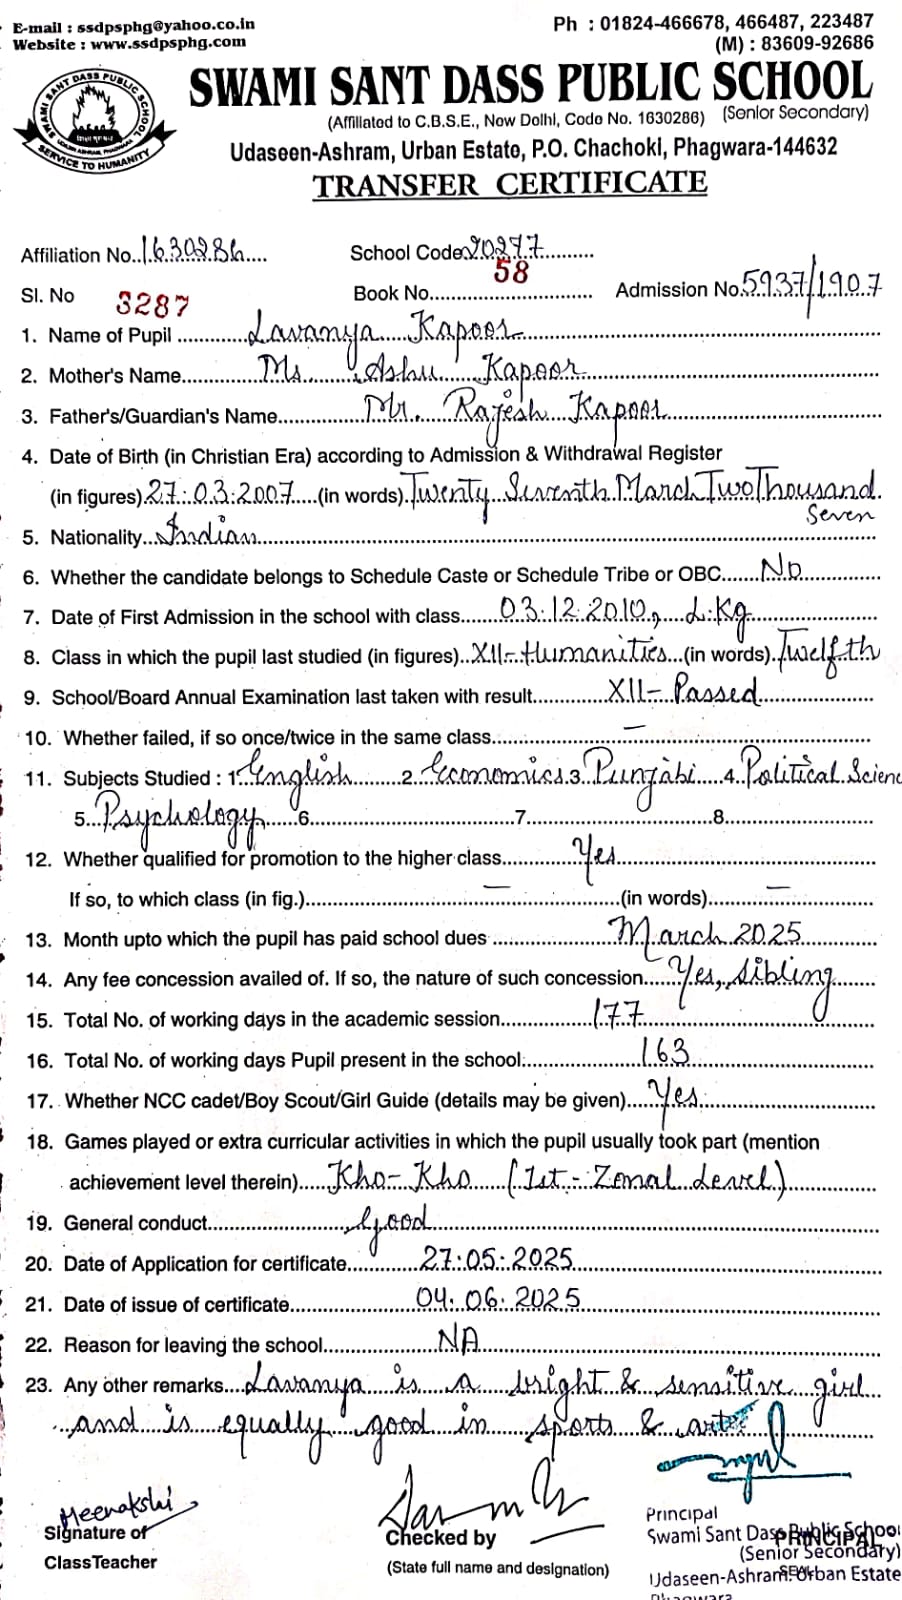 E-mail : ssdpsphg@yahoo.co.in
Website : www.ssdpsphg.com
Ph : 01824-466678, 466487, 223487
(M) : 83609-92686
SWAMI SANT DASS PUBLIC SCHOOL
(Affiliated to C.B.S.E., New Delhi, Code No. 1630286) (Senior Secondary)
SWAMI SANT DASS PUBLIC SCHOOL
UDASEEN ASHRAM, PHAGWARA
SERVICE TO HUMANITY
Udaseen-Ashram, Urban Estate, P.O. Chachoki, Phagwara-144632
TRANSFER CERTIFICATE
Affiliation No..1630286.... School Code 20277..........
Sl. No 3287 Book No. 58 Admission No. 5937/1907
1. Name of Pupil ............Lavanya Kapoor
2. Mother's Name..............Ms. Ashu Kapoor
3. Father's/Guardian's Name..............Mr. Rajesh Kapoor
4. Date of Birth (in Christian Era) according to Admission & Withdrawal Register
(in figures) 27.03.2007....(in words) Twenty Seventh March Two Thousand
Seven
5. Nationality..Indian
6. Whether the candidate belongs to Schedule Caste or Schedule Tribe or OBC.......No
7. Date of First Admission in the school with class......03.12.2010, L.Kg
8. Class in which the pupil last studied (in figures)..XII-Humanities...(in words) Twelfth
9. School/Board Annual Examination last taken with result............XII-Passed
10. Whether failed, if so once/twice in the same class.............–
11. Subjects Studied : 1. English 2. Economics 3. Punjabi 4. Political Scienc
5...Psychology 6. 7. 8.
12. Whether qualified for promotion to the higher class............Yes
If so, to which class (in fig.)............–............(in words)........–
13. Month upto which the pupil has paid school dues ............March 2025
14. Any fee concession availed of. If so, the nature of such concession......Yes, Sibling
15. Total No. of working days in the academic session............177
16. Total No. of working days Pupil present in the school............163
17. Whether NCC cadet/Boy Scout/Girl Guide (details may be given)....Yes
18. Games played or extra curricular activities in which the pupil usually took part (mention
achievement level therein).....Kho-Kho (1st - Zonal Level)
19. General conduct..................Good
20. Date of Application for certificate............27.05.2025
21. Date of issue of certificate............04.06.2025
22. Reason for leaving the school............NA
23. Any other remarks....Lavanya is a bright & sensitive girl
and is equally good in sports & arts
Meenakshi
Signature of
ClassTeacher
Checked by
(State full name and designation)
Principal
Swami Sant Dass Public School
PRINCIPAL
(Senior Secondary)
SEAL
Udaseen-Ashram. Urban Estate
Phagwara